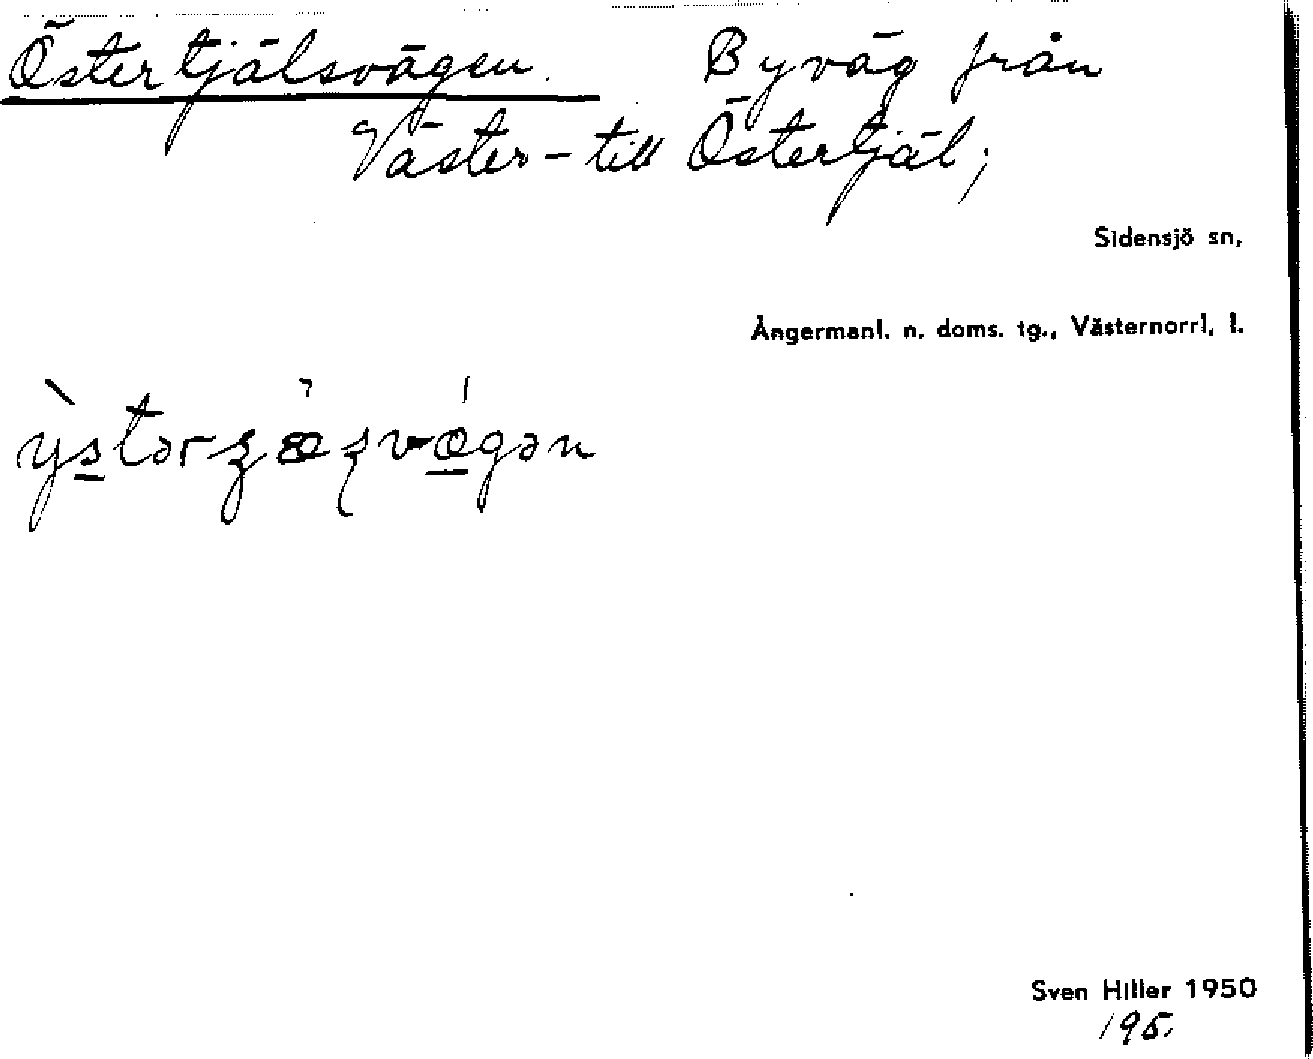 Östertjälsvägen. Byväg från
Väster- till Östertjäl;
Sidensjö sn,
Ångermanl. n. doms. tg., Västernorrl. l.
Sven Hiller 1950
195.